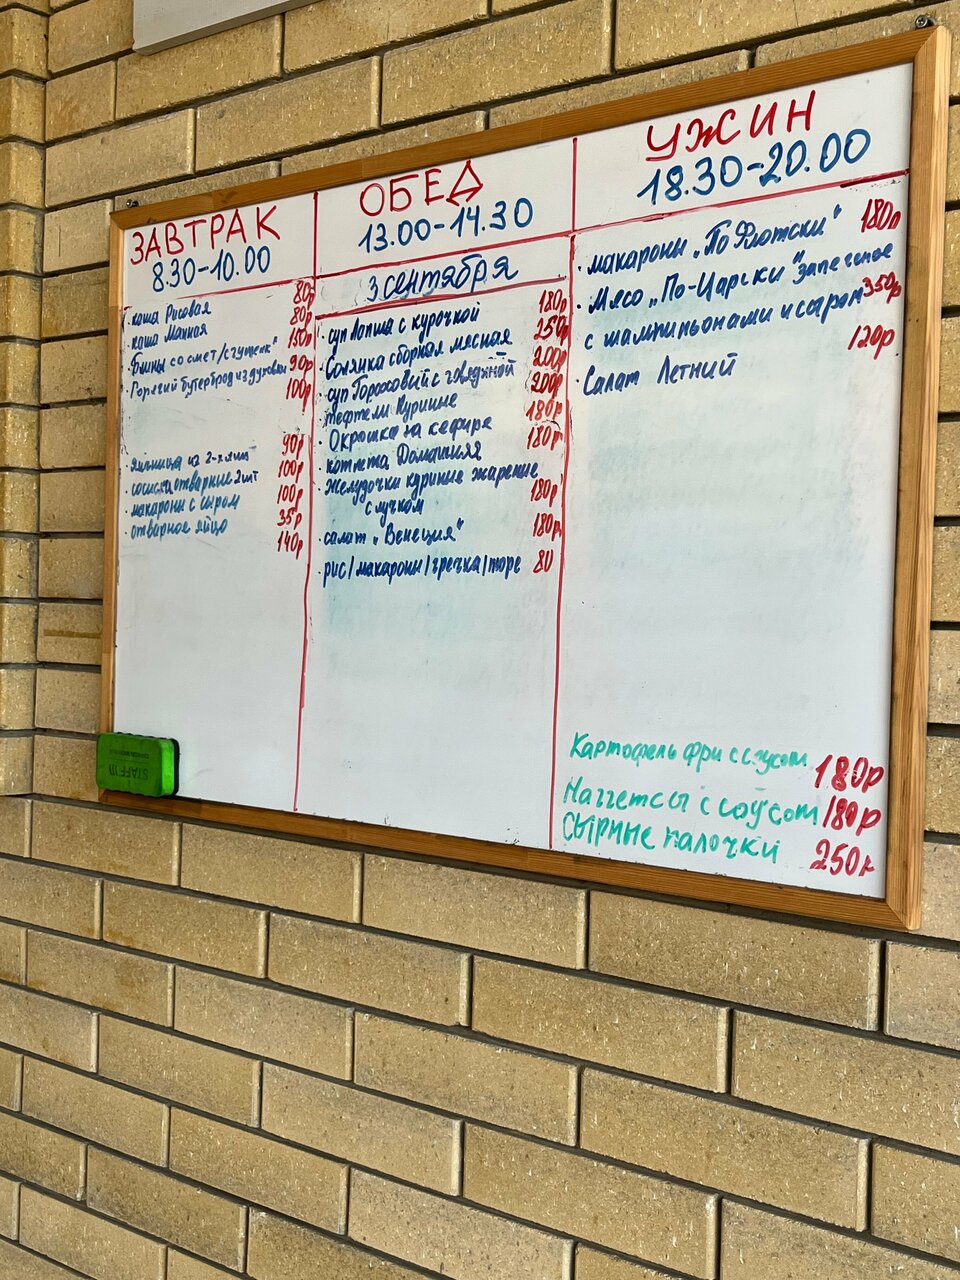 ЗАВТРАК
8.30-10.00
· каша Рисовая 80р
· каша Манная 80р
· Блины со смет/сгущенк" 150р
· Горячий бутерброд из духовки 90р
100р
· яичница из 2-х яиц 90р
· сосиска отварные 2шт 100р
· макароны с сыром 100р
· отварное яйцо 35р
140р
ОБЕД
13.00-14.30
3 сентября
· суп Лапша с курочкой 180р
· Солянка сборная мясная 250р
· суп Гороховый с говядиной 200р
· тефтели Куриные 200р
· Окрошка на кефире 180р
· котлета Домашняя 180р
· желудочки куриные жарение
с лучком 180р
· салат „Венеция" 180р
· рис/макароны/гречка/пюре 80
УЖИН
18.30-20.00
· макароны „По Флотски" 180р
· Мясо „По-Царски" запеченое
с шампиньонами и сыром 350р
· Салат Летний 120р
Картофель фри с соусом 180р
Наггетсы с соусом 180р
Сырные палочки 250р
STAFF